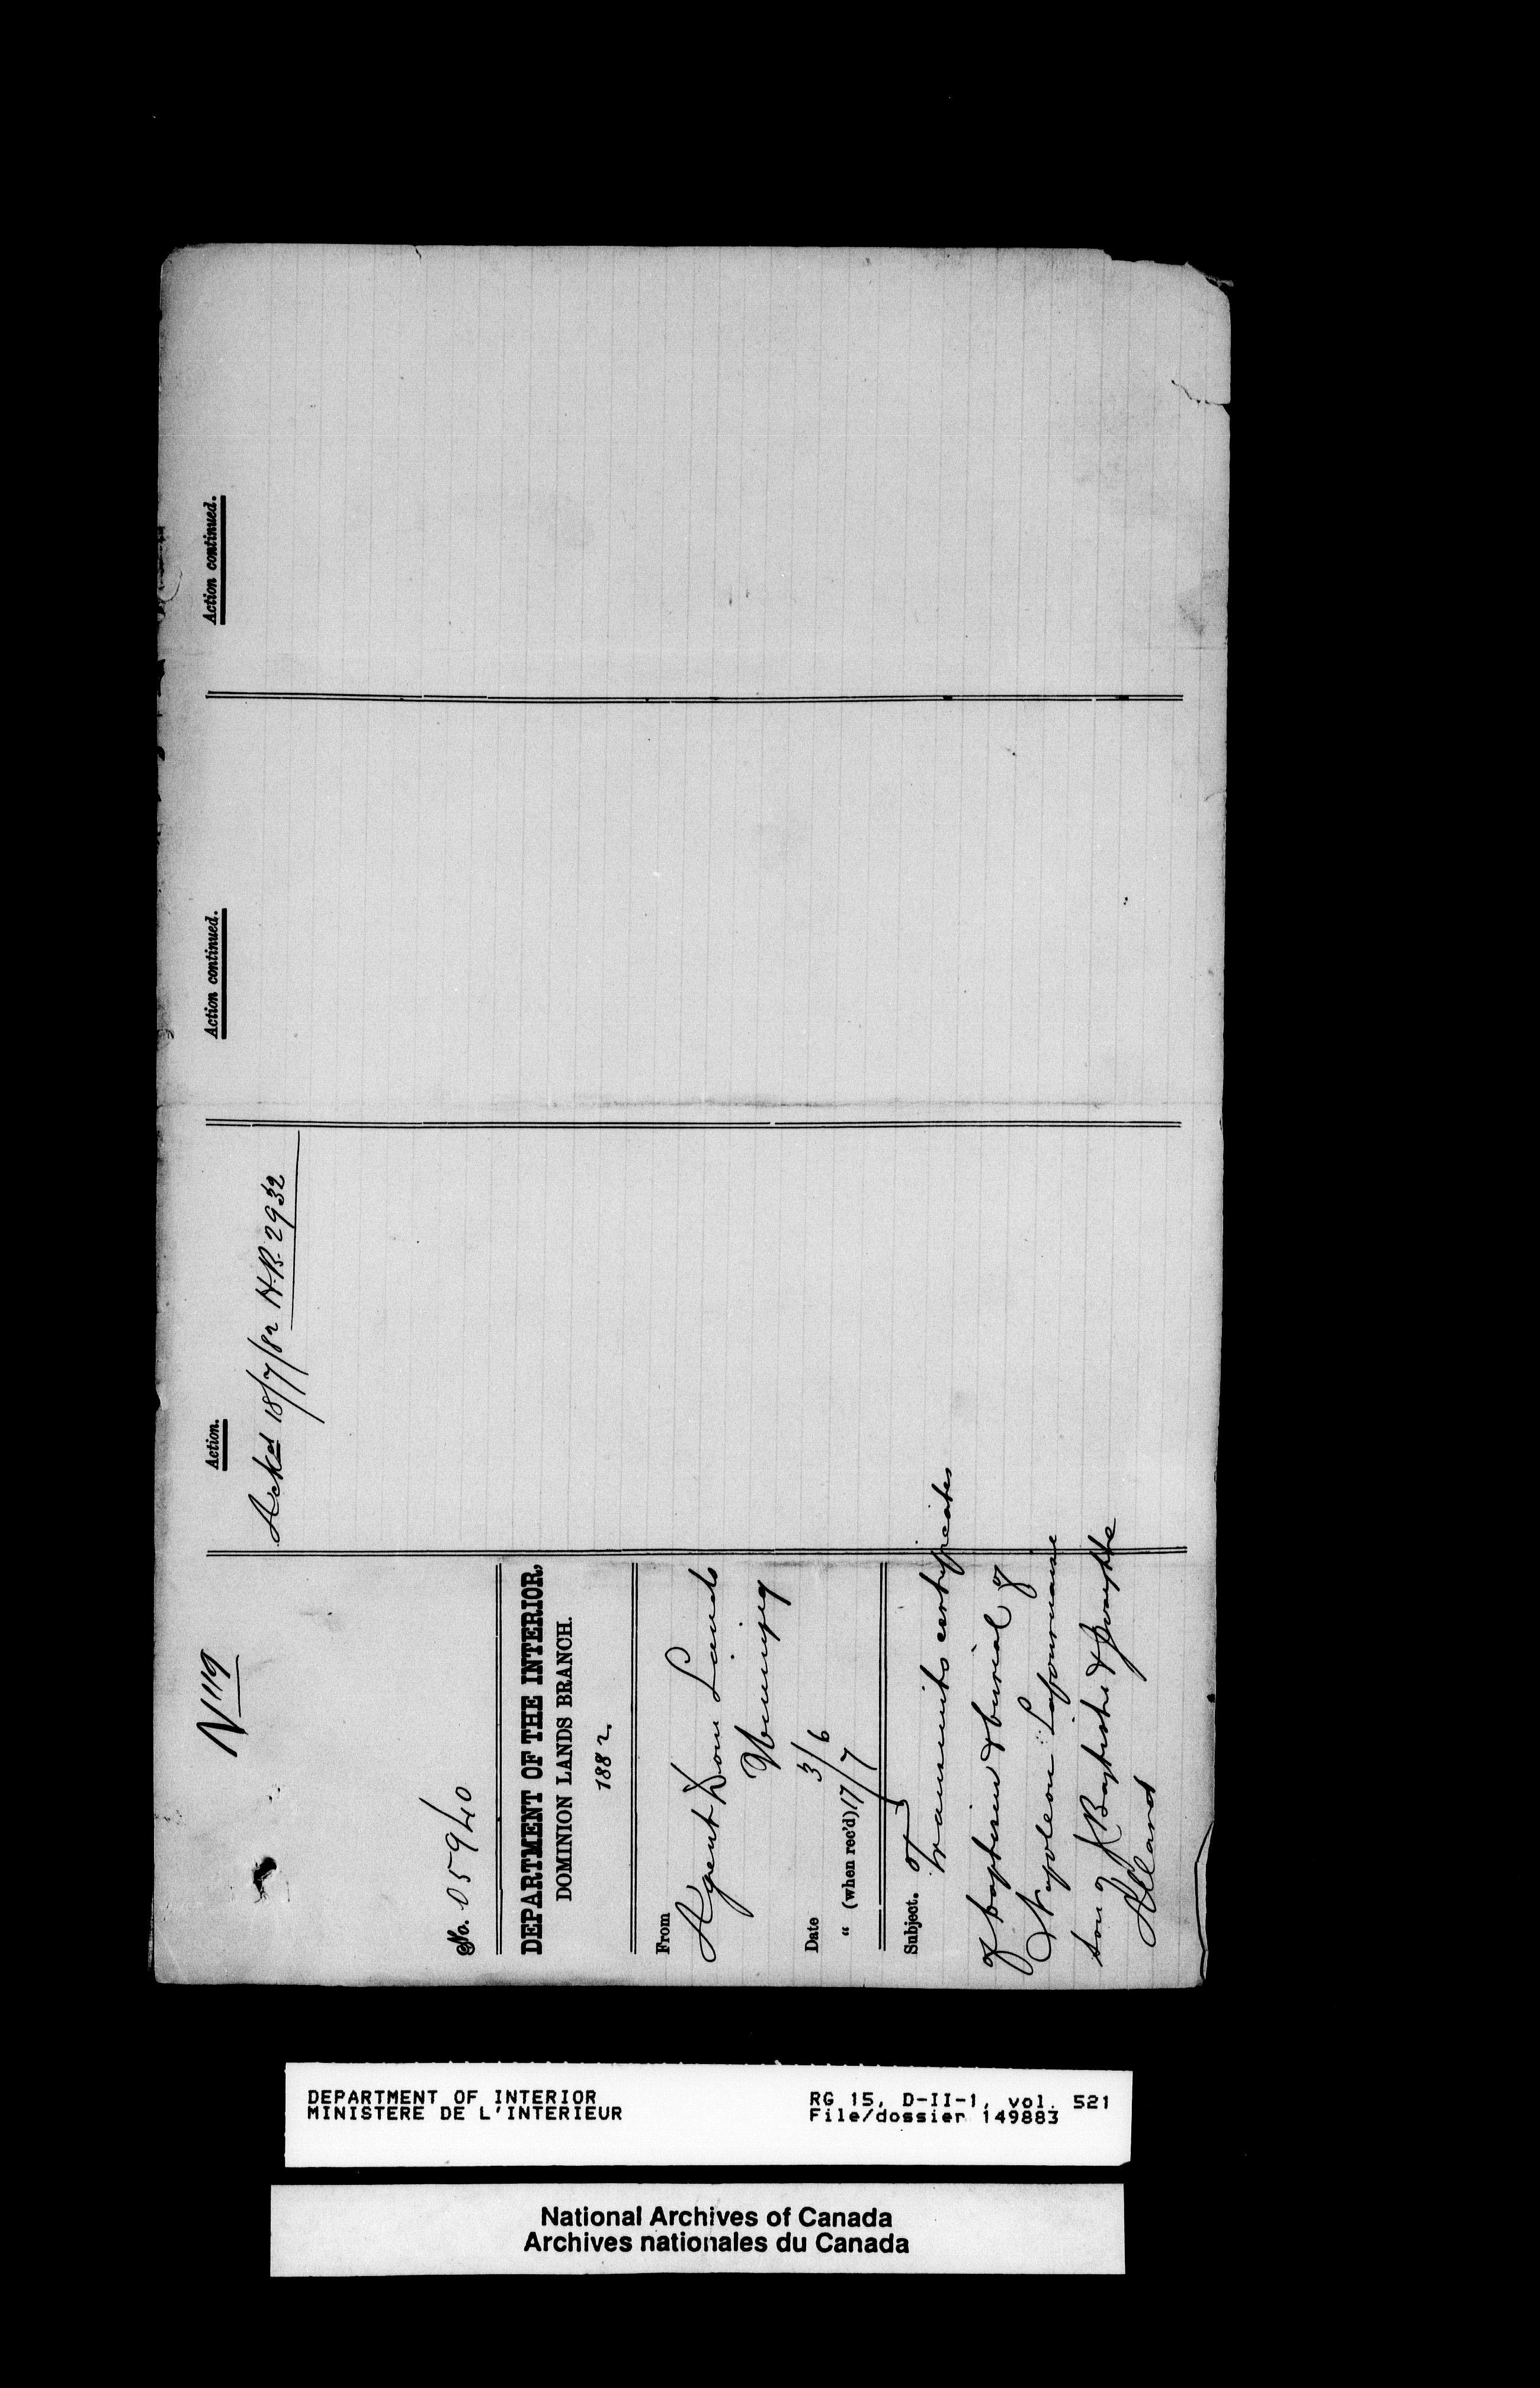 N 119
No. 05940
DEPARTMENT OF THE INTERIOR,
DOMINION LANDS BRANCH.
1882.
From
Agent Dom Lands
Winnipeg
Date 3/6
" (when rec'd) 17/7
Subject. Transmits certificates
of baptism & burial of
Napoleon Lafournaise
son of J Baptiste &
Allard
Action.
Ackd 18/7/82 H.B. 2932
Action continued.
Action continued.
DEPARTMENT OF INTERIOR
MINISTERE DE L'INTERIEUR
RG 15, D-II-1, vol. 521
File/dossier 149883
National Archives of Canada
Archives nationales du Canada